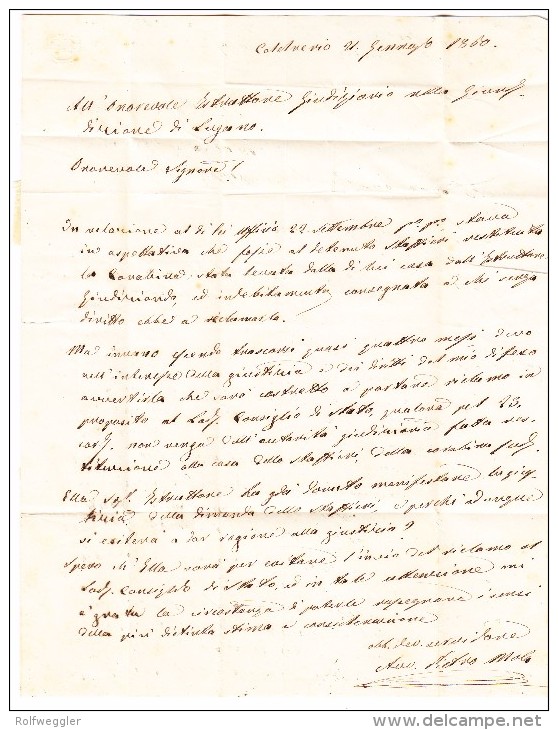 Coldrerio 21. Gennajo 1860.
All' Onorevole Istruttore Giudiziario nella Giuris-
dizione di Lugano.
Onorevole Signore!
In relazione al di lei uffizio 22 settembre p.º p.º stava
in aspettativa che fosse al detenuto Staffieri restituita
la Carabina stata levata dalla di lui casa dall' Istruttore
Giudiziario, ed indebitamente consegnata a chi senza
diritto ebbe a reclamarla.
Ma invano essendo trascorsi quasi quattro mesi devo
nell' interesse della giustizia e dei diritti del mio difeso
avvertirla che sarò costretto a portare reclamo in
proposito al Lod. Consiglio di Stato, qualora pel 23
corr. non venga dall' autorità giudiziaria fatta res-
tituzione alla casa dello Staffieri, della carabina sudd.
Ella Sig. Istruttore ha già dovuto manifestare la gius-
tizia della dimanda dello Staffieri, e perchè adunque
si esiterà a dar ragione alla giustizia?
Spero ch' Ella sarà per evitare l' invio del reclamo al
Lod. Consiglio di Stato, ed in tale attenzione mi
è grata la circostanza di poterle rassegnare i sensi
della più distinta stima e considerazione
obb. dev. servitore
Avv. Pietro Mola
Rolfweggler
www.delcampe.net